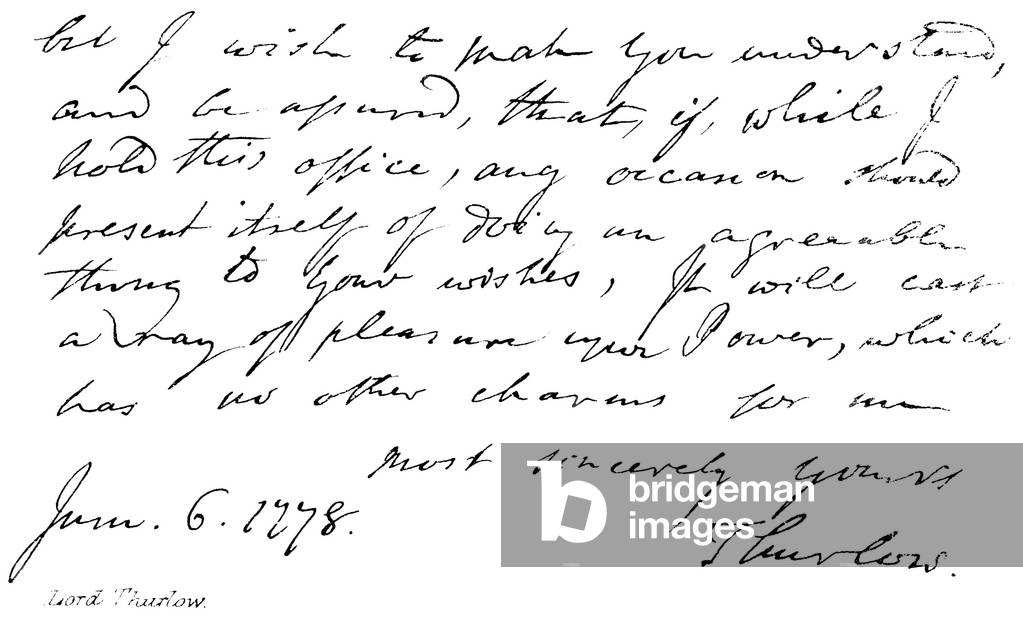 but I wish to make you understand,
and be assured, that, if, while I
hold this office, any occasion should
present itself of doing an agreeable
thing to your wishes, It will cast
a ray of pleasure upon Power, which
has no other charms for me
most sincerely yours
June. 6. 1778.
Thurlow.
Lord Thurlow.
bridgeman
images